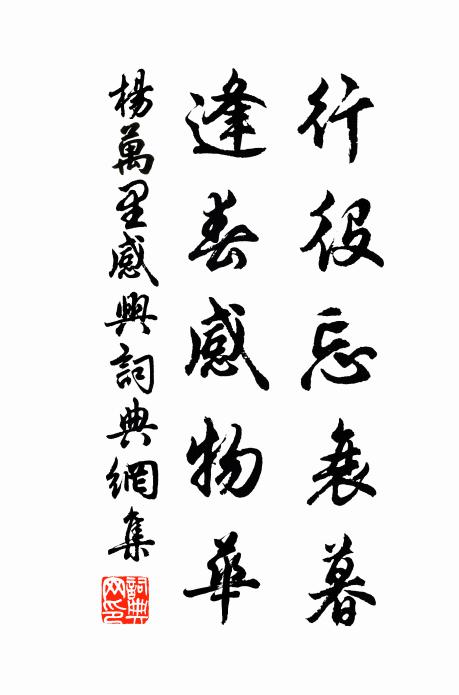 行役忘衰暮
逢春感物華
楊萬里感興詞典網集
詞典网印